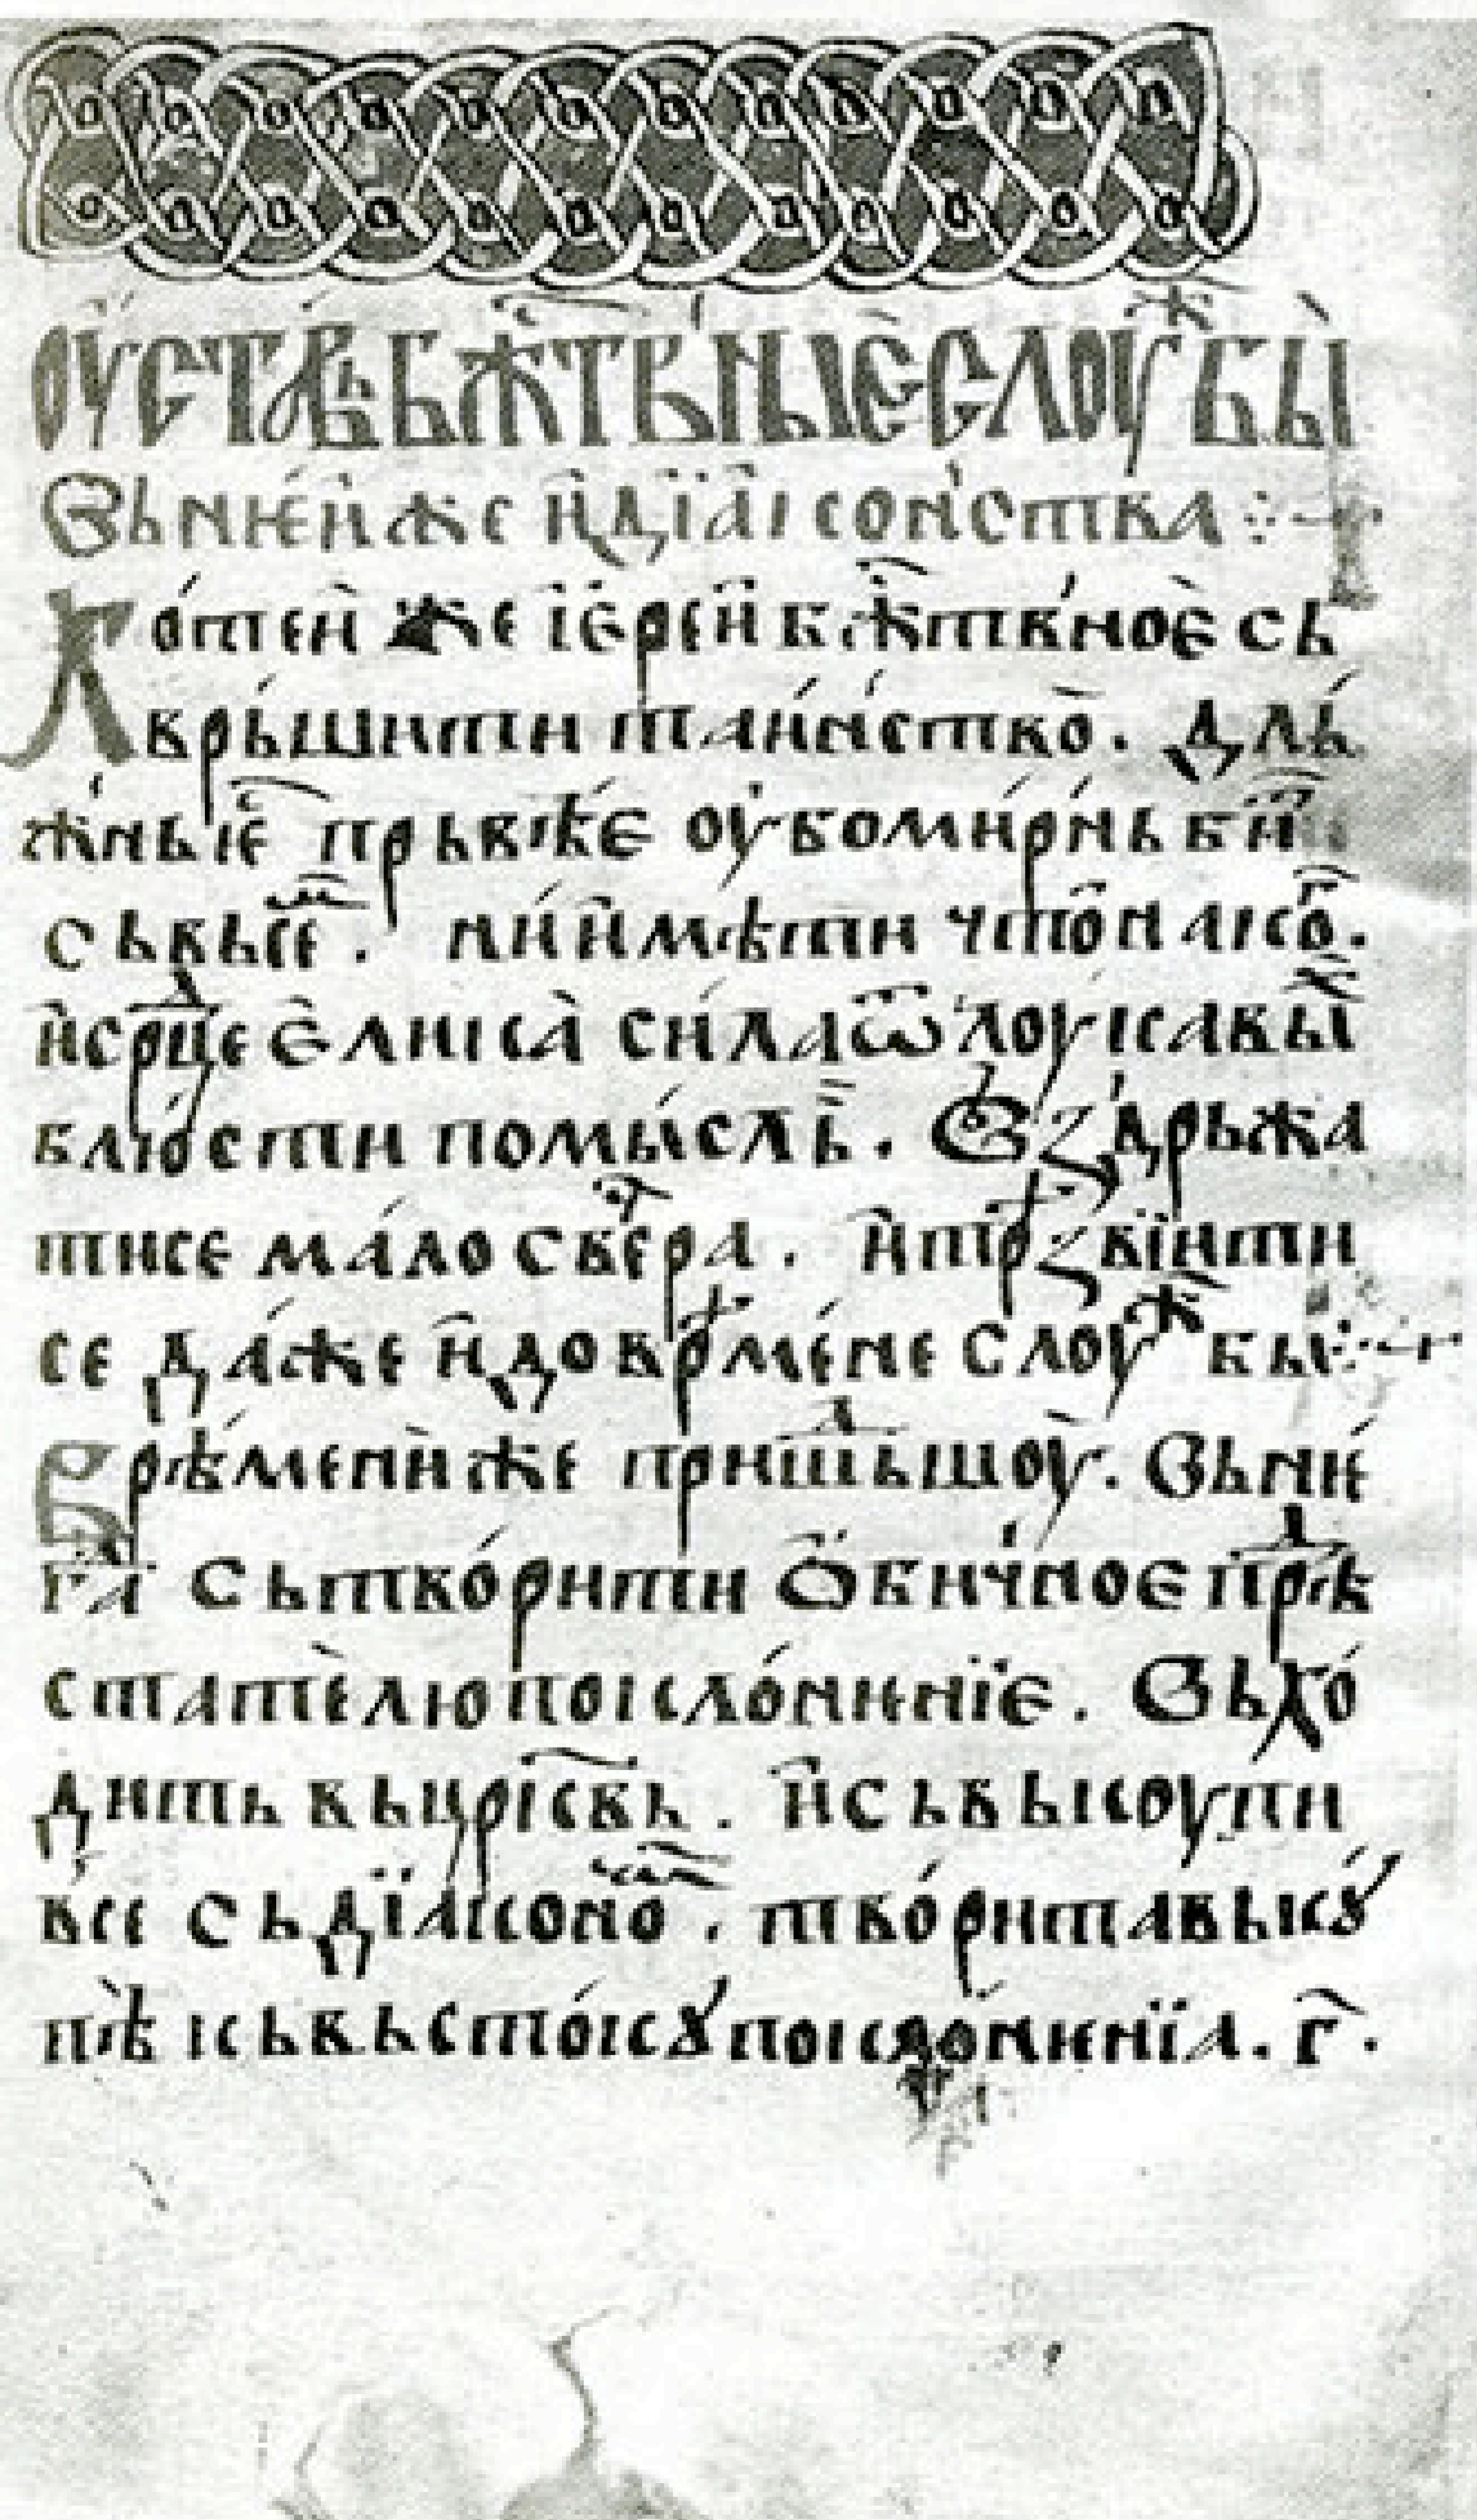 ОУ҆СТАВЬ БЖ҇ТВЬНЫЕ СЛОУⷤБЫ
Вь нѥ́и же и҆ дїа́конства :~
Хо́теи же і҆ере́и бж҇тв́ноѐ сь
врь́шити таи́н́ство̀ . дль́
ж́нь ѥ҆с҇ прьвѣ́е оу҆бо ми́р́нь би҇ти
сь въсе́ⷨи . ни и҆мѣти что̀ на ко҇го .
и҆ срⷣце є҆лика̀ си́ла ѿ лоукавы҇х
блю́сти помы́сль . Вьздрьжа
тисе ма́ло с ве́ⷱра . и҆ трⷺзви́ти
се да́же и҆ до врⷺме́не слоуⷤбы :~
Врѣ́мени̇ же приⷲⷣьшоу̀ . Вь нѥ́
гⷣа сьтво́рити ѻ҆бич́ное прⷣѣ
статѐлю покло́нѥнїе . Вьхо́
дить вь цр҃квь . и҆ сьвькоупи
в́се сь дїа́коноⷨ . тво́рита вькꙋ́
пѣ̀ кь вьсто́кꙋ покло́нѥнїа . г҃ .